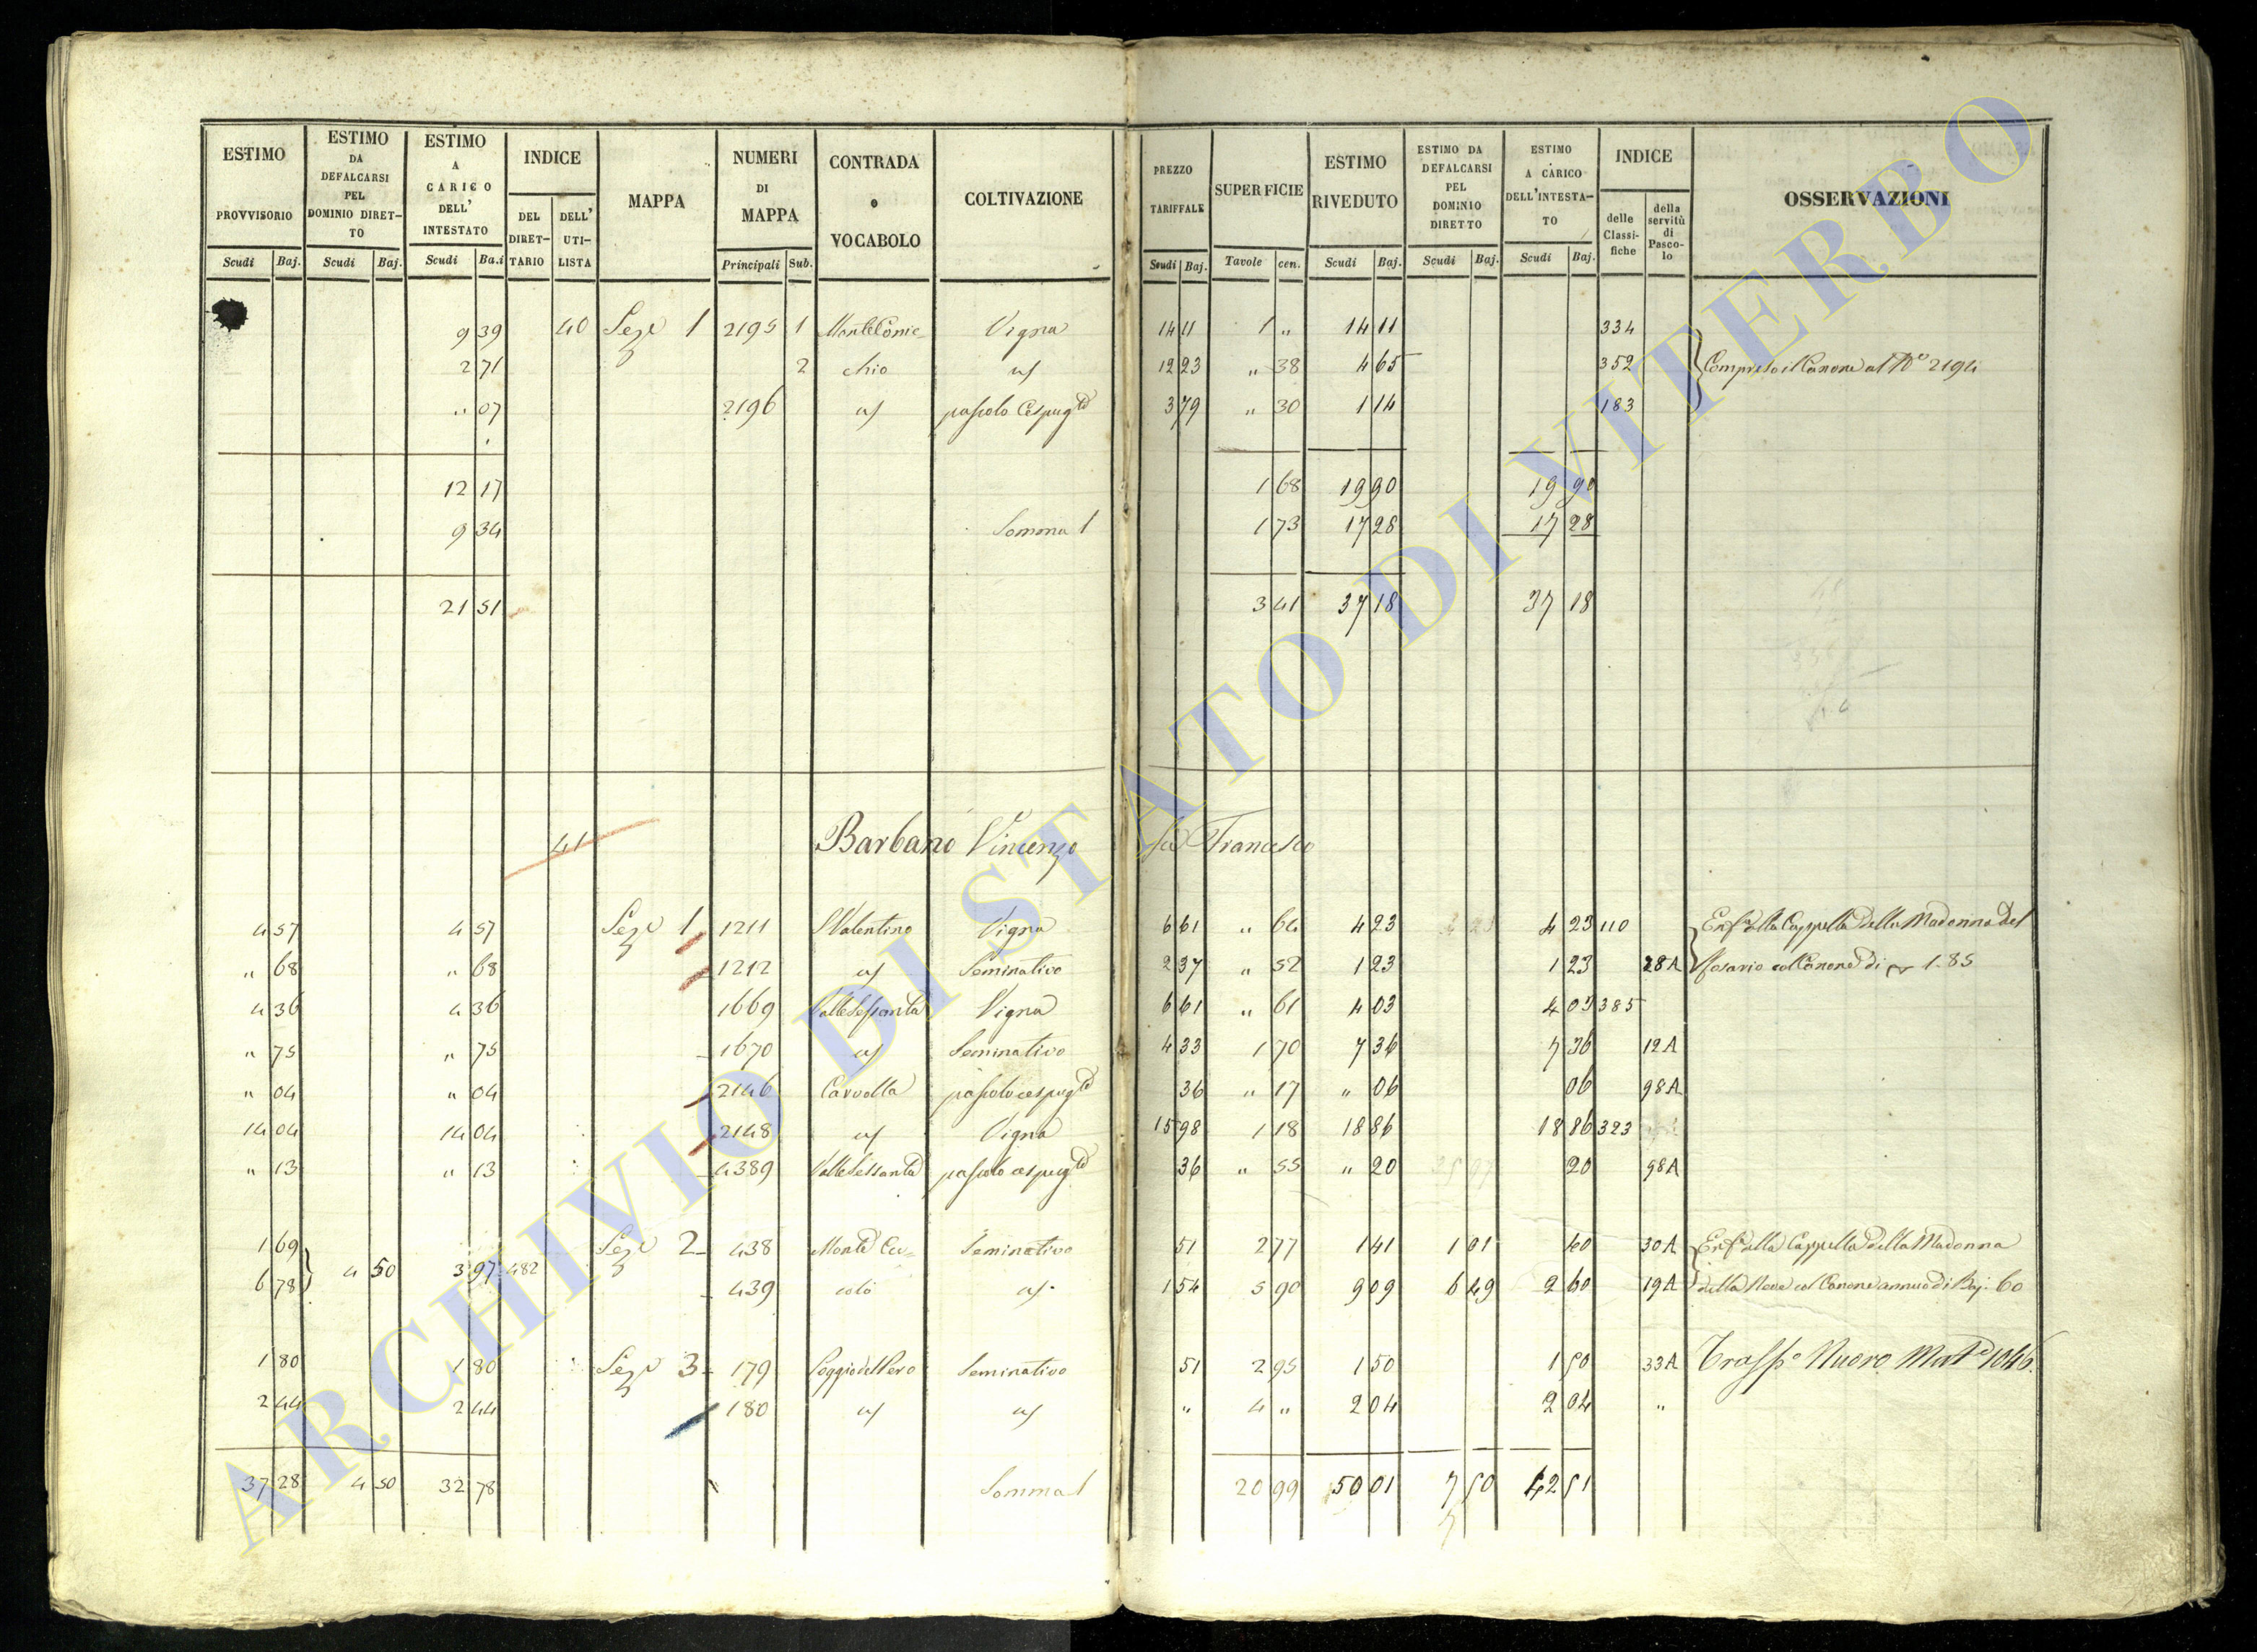 ESTIMO PROVVISORIO Scudi Baj.
ESTIMO DA DEFALCARSI PEL DOMINIO DIRET-TO Scudi Baj.
ESTIMO A CARICO DELL' INTESTATO Scudi Ba.i
INDICE DEL DIRET-TARIO DELL' UTI-LISTA
MAPPA
NUMERI DI MAPPA Principali Sub.
CONTRADA o VOCABOLO
COLTIVAZIONE
PREZZO TARIFFALE Scudi Baj.
SUPERFICIE Tavole cen.
ESTIMO RIVEDUTO Scudi Baj.
ESTIMO DA DEFALCARSI PEL DOMINIO DIRETTO Scudi Baj.
ESTIMO A CARICO DELL'INTESTA-TO Scudi Baj.
INDICE delle Classi-fiche della servitù di Pasco-lo
OSSERVAZIONI
9 39 40 Seze 1 2195 1 Vigna 14 11 1 " 14 11 334
2 71 2 chio 12 23 " 38 4 65 352 Compreso il Canone al N° 2194
" 07 2196 pascolo Cespugto 3 79 " 30 1 14 183
12 17 1 68 19 90 19 90
9 34 Somma 1 1 73 17 28 17 28
21 51 3 41 37 18 37 18
41 Barbano Vincenzo fu Francesco
4 57 4 57 Seze 1 1211 S Valentino Vigna 6 61 " 64 4 23 4 23 110 Enfa alla Cappella della Madonna del
" 68 " 68 1212 Seminativo 2 37 " 52 1 23 1 23 28A Rosario col Canone di 1.85
4 36 4 36 1669 Vigna 6 61 " 61 4 03 4 03 385
" 75 " 75 1670 Seminativo 4 33 1 70 7 36 7 36 12A
" 04 " 04 2146 Carvolla pascolo cespugto 36 " 17 " 06 06 98A
14 04 14 04 2148 Vigna 15 98 1 18 18 86 18 86 323
" 13 " 13 4389 pascolo cespugto 36 " 55 " 20 20 98A
1 69 Seze 2 438 Monte Cu= Seminativo 51 2 77 1 41 1 01 40 30A Enfa alla Cappella della Madonna
6 78 4 50 3 97 482 439 colo 1 54 5 90 9 09 6 49 2 60 19A della Neve col Canone annuo di Baj. 60
1 80 1 80 Seze 3 179 Poggio del Pero Seminativo 51 2 95 1 50 1 50 33A Trasspo Nuovo Mate 1046
2 44 2 44 180 " 4 " 2 04 2 04 "
37 28 4 50 32 78 Somma 1 20 99 50 01 7 50 42 51
ARCHIVIO DI STATO DI VITERBO